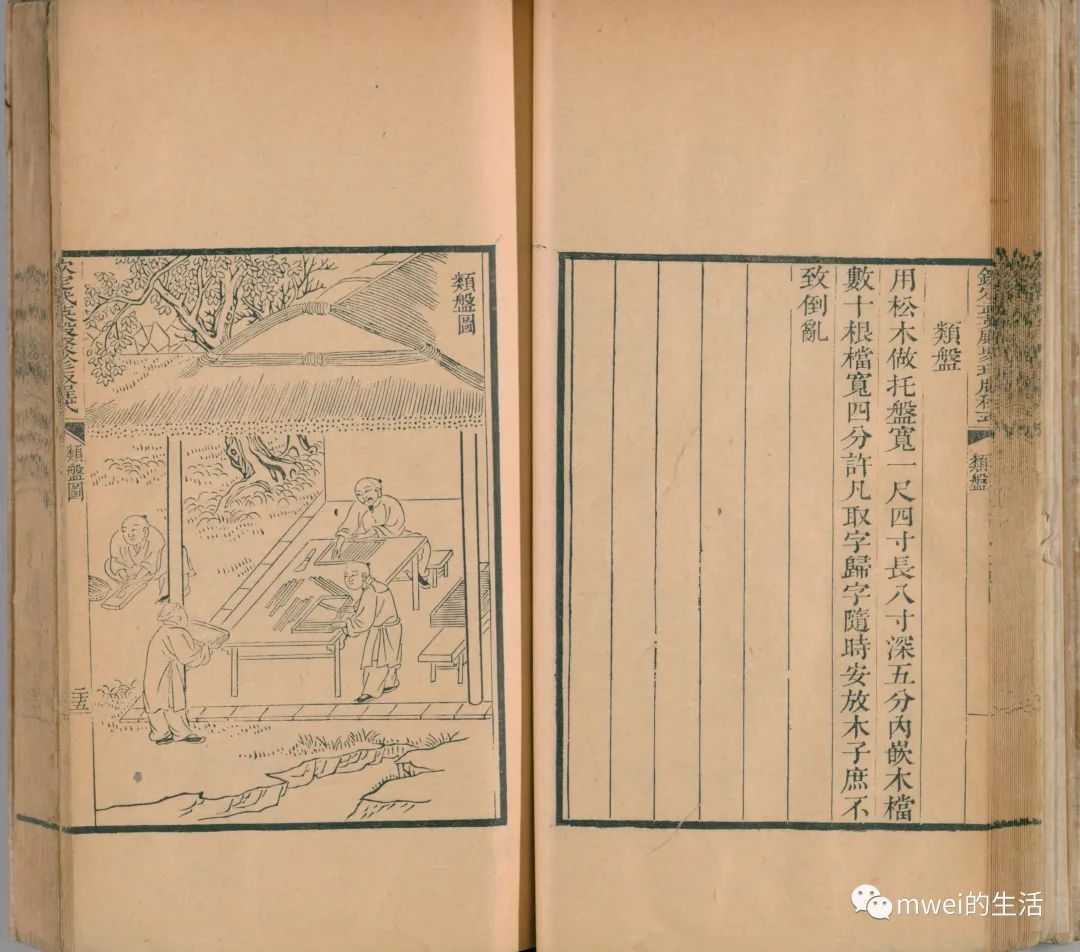 類盤
用松木做托盤寬一尺四寸長八寸深五分內嵌木檔
數十根檔寬四分許凡取字歸字隨時安放木子庶不
致倒亂
類盤
類盤圖
欽定武英殿聚珍版程式
類盤圖
二十五
mwei的生活